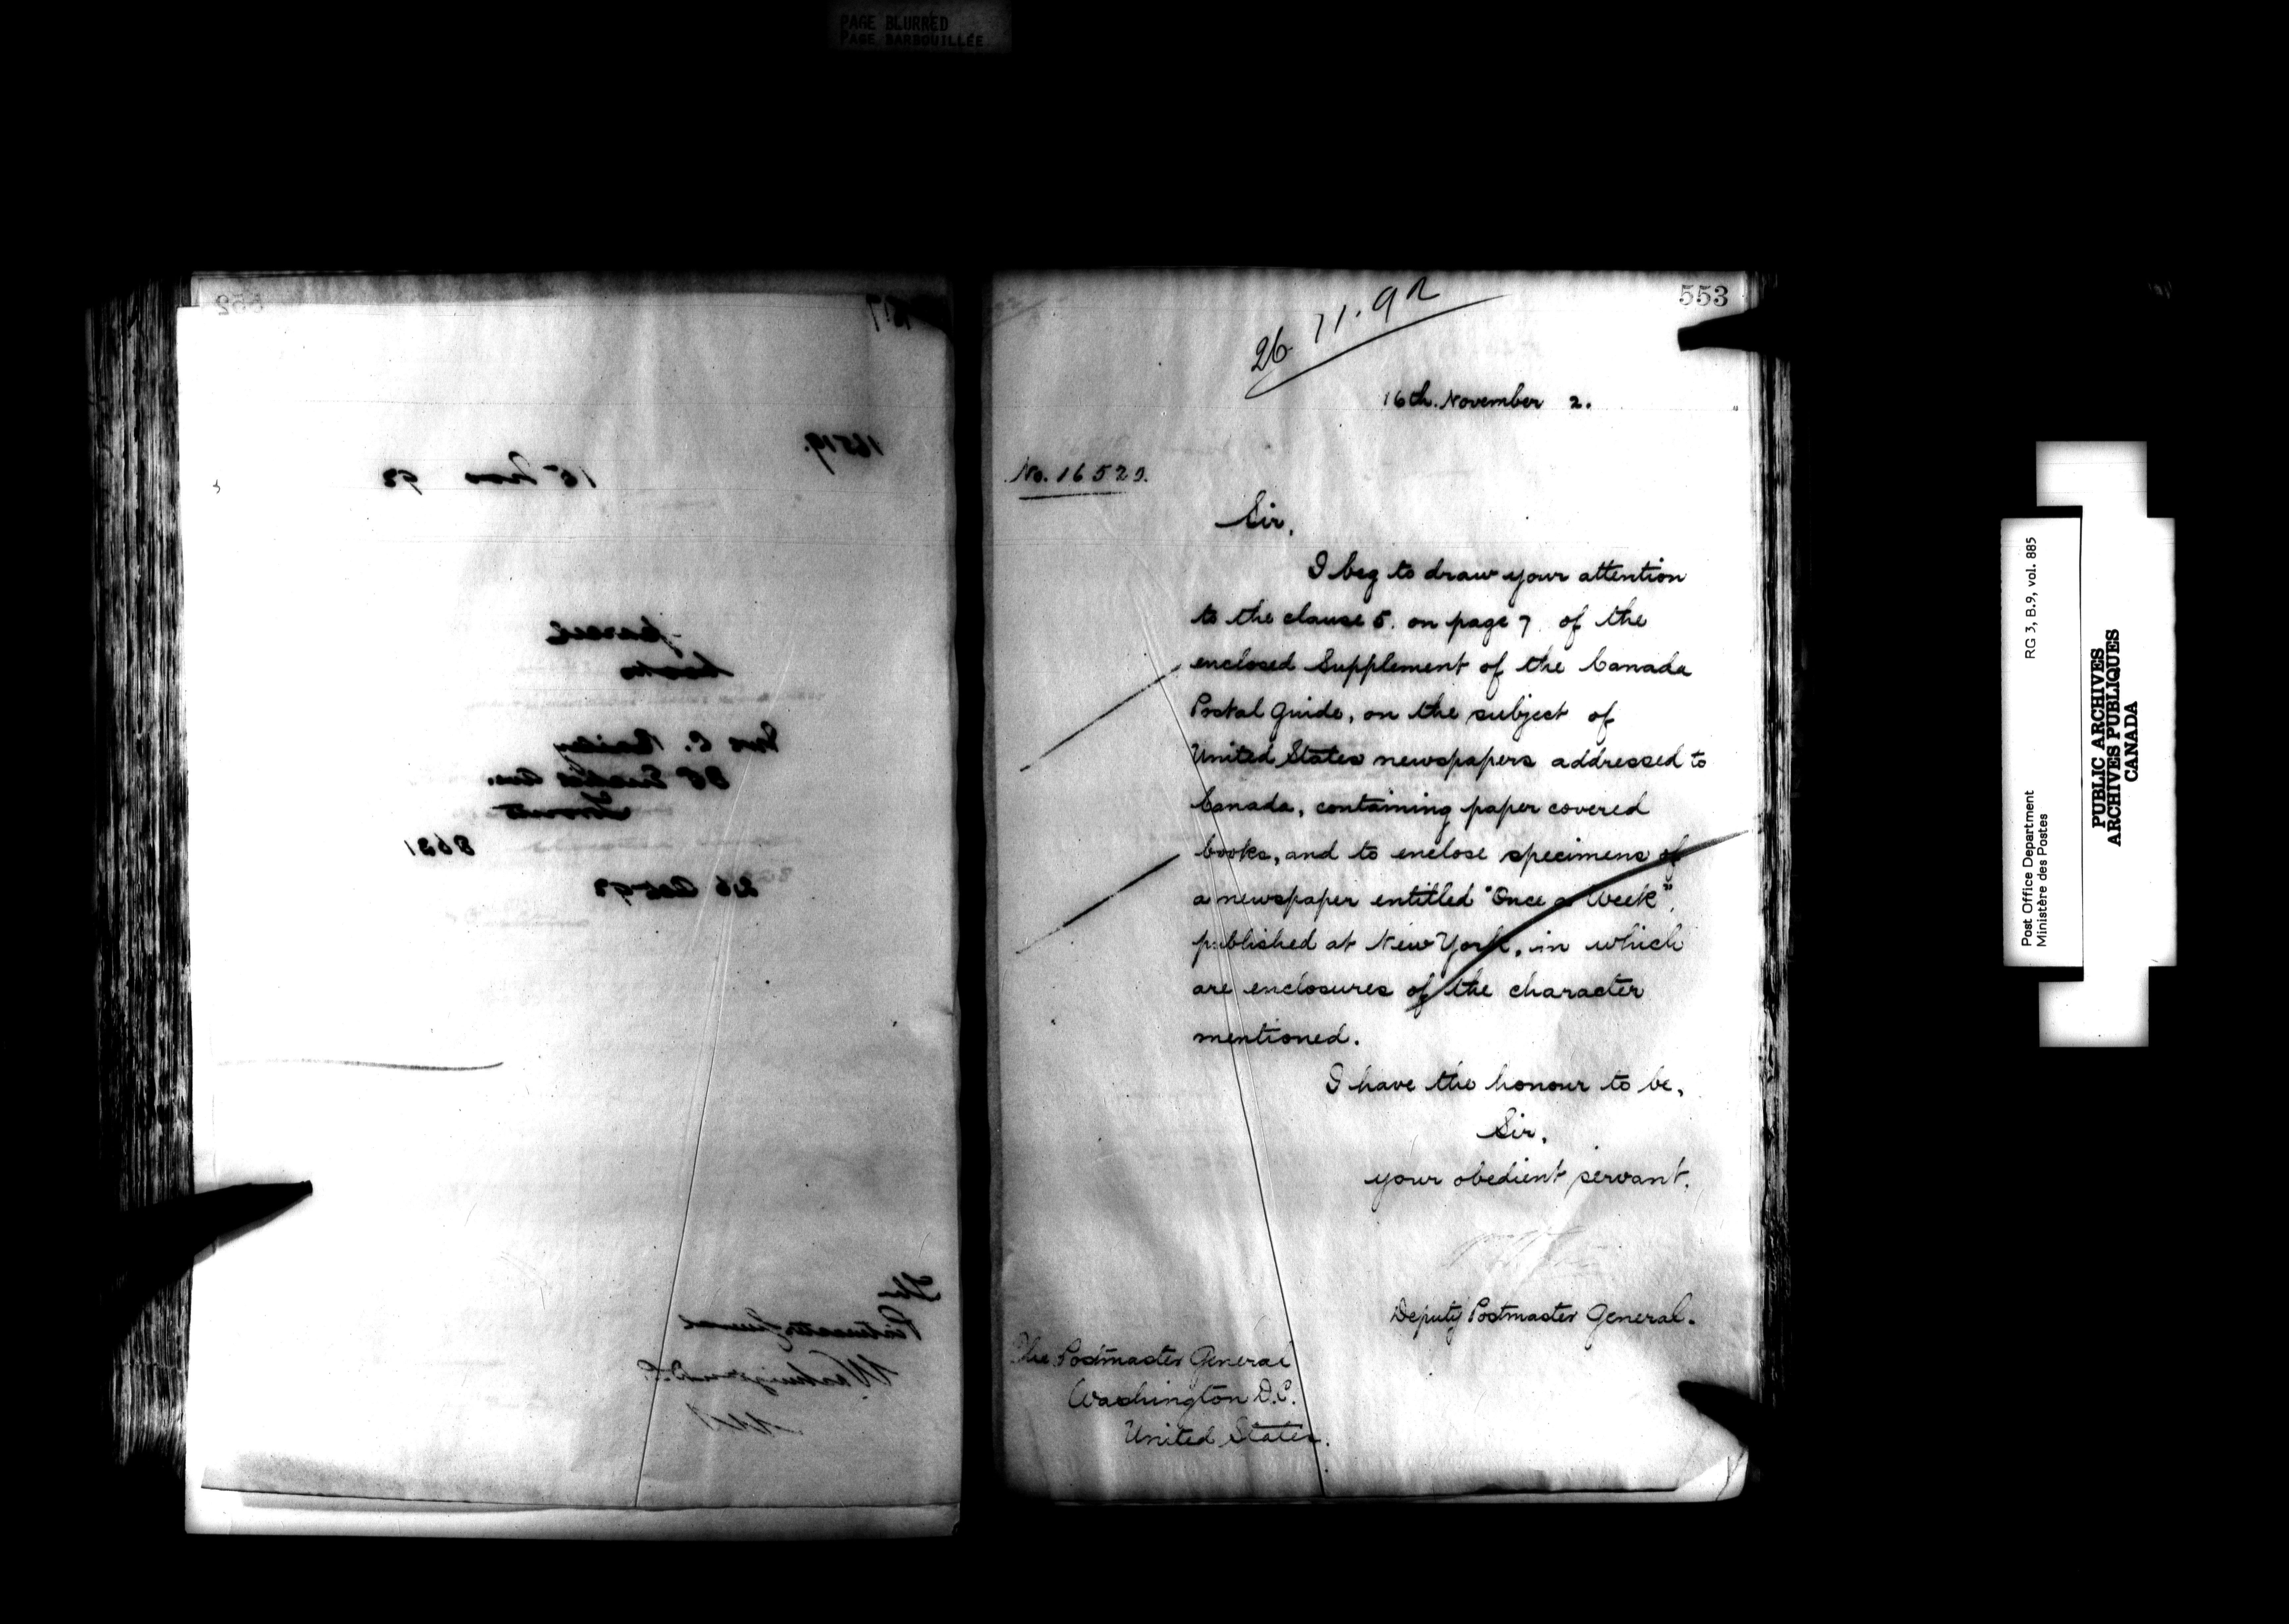 PAGE BLURRED
PAGE BARBOUILLÉE
552
16519.
15 Nov 92
parcel
books
Mrs C. Bailey
Toronto
8631
26 Oct 92
The
Postmaster General
Washington D.C.
553
26 11. 92
16th. November 2.
No. 16523.
Sir,
I beg to draw your attention
to the clause 5. on page 7 of the
enclosed Supplement of the Canada
Postal Guide, on the subject of
United States newspapers addressed to
Canada, containing paper covered
books, and to enclose specimens of
a newspaper entitled "Once a Week",
published at New York, in which
are enclosures of the character
mentioned.
I have the honour to be,
Sir,
your obedient servant.
Deputy Postmaster General.
The Postmaster General
Washington D.C.
United States.
Post Office Department RG 3, B.9, vol. 885
Ministère des Postes
PUBLIC ARCHIVES
ARCHIVES PUBLIQUES
CANADA